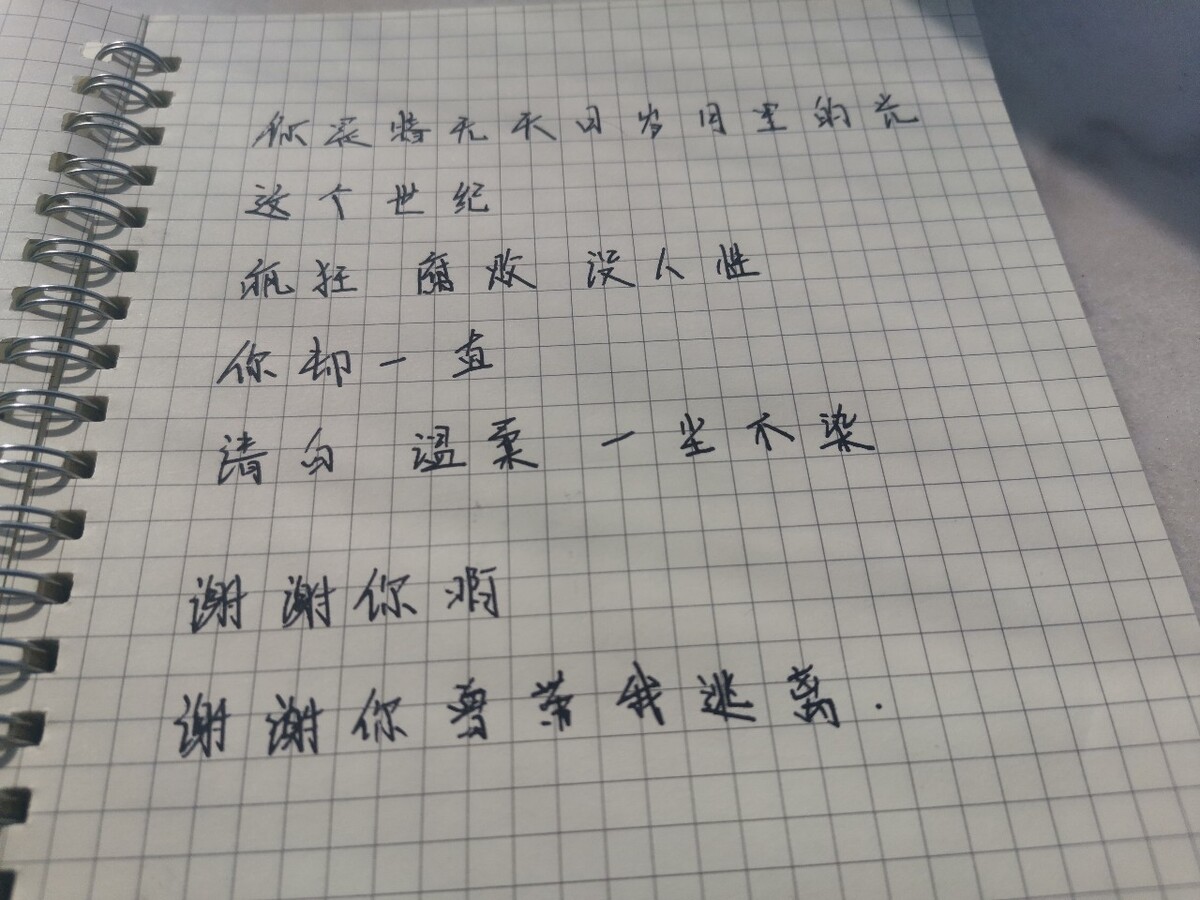 你是暗无天日岁月里的光
这个世纪
疯狂 腐败 没人性
你却一直
清白 温柔 一尘不染
谢谢你啊
谢谢你曾带我逃离.